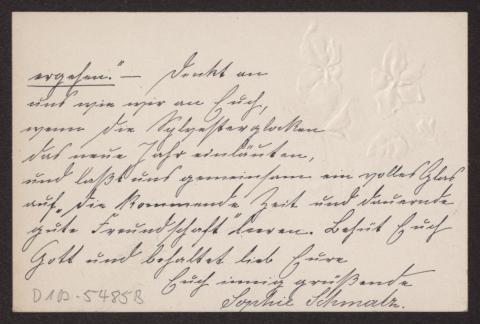 ergehen." – Denkt an
uns wie wir an Euch,
wenn die Sylvesterglocken
das neue Jahr einläuten,
und laßt uns gemeinsam ein volles Glas
auf „die kommende Zeit und dauernde
gute Freundschaft" leeren. Behüt Euch
Gott und behaltet lieb Eure
Euch innig grüßende
Sophie Schmalz.
D1D-5485B